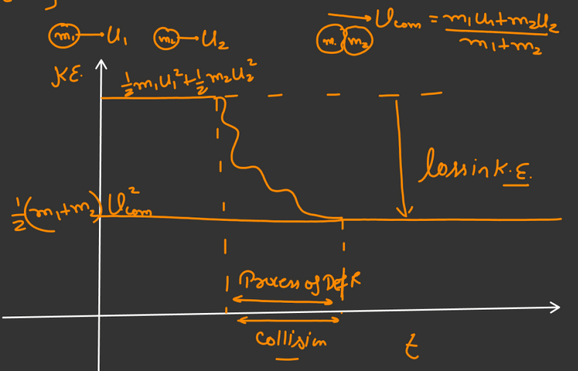 m₁ → u₁ m₂ → u₂
m₁ m₂ → U_com = (m₁u₁+m₂u₂)/(m₁+m₂)
K.E.
½m₁u₁²+½m₂u₂²
loss in K.E.
½(m₁+m₂)U²com
Process of Def
Collision
t